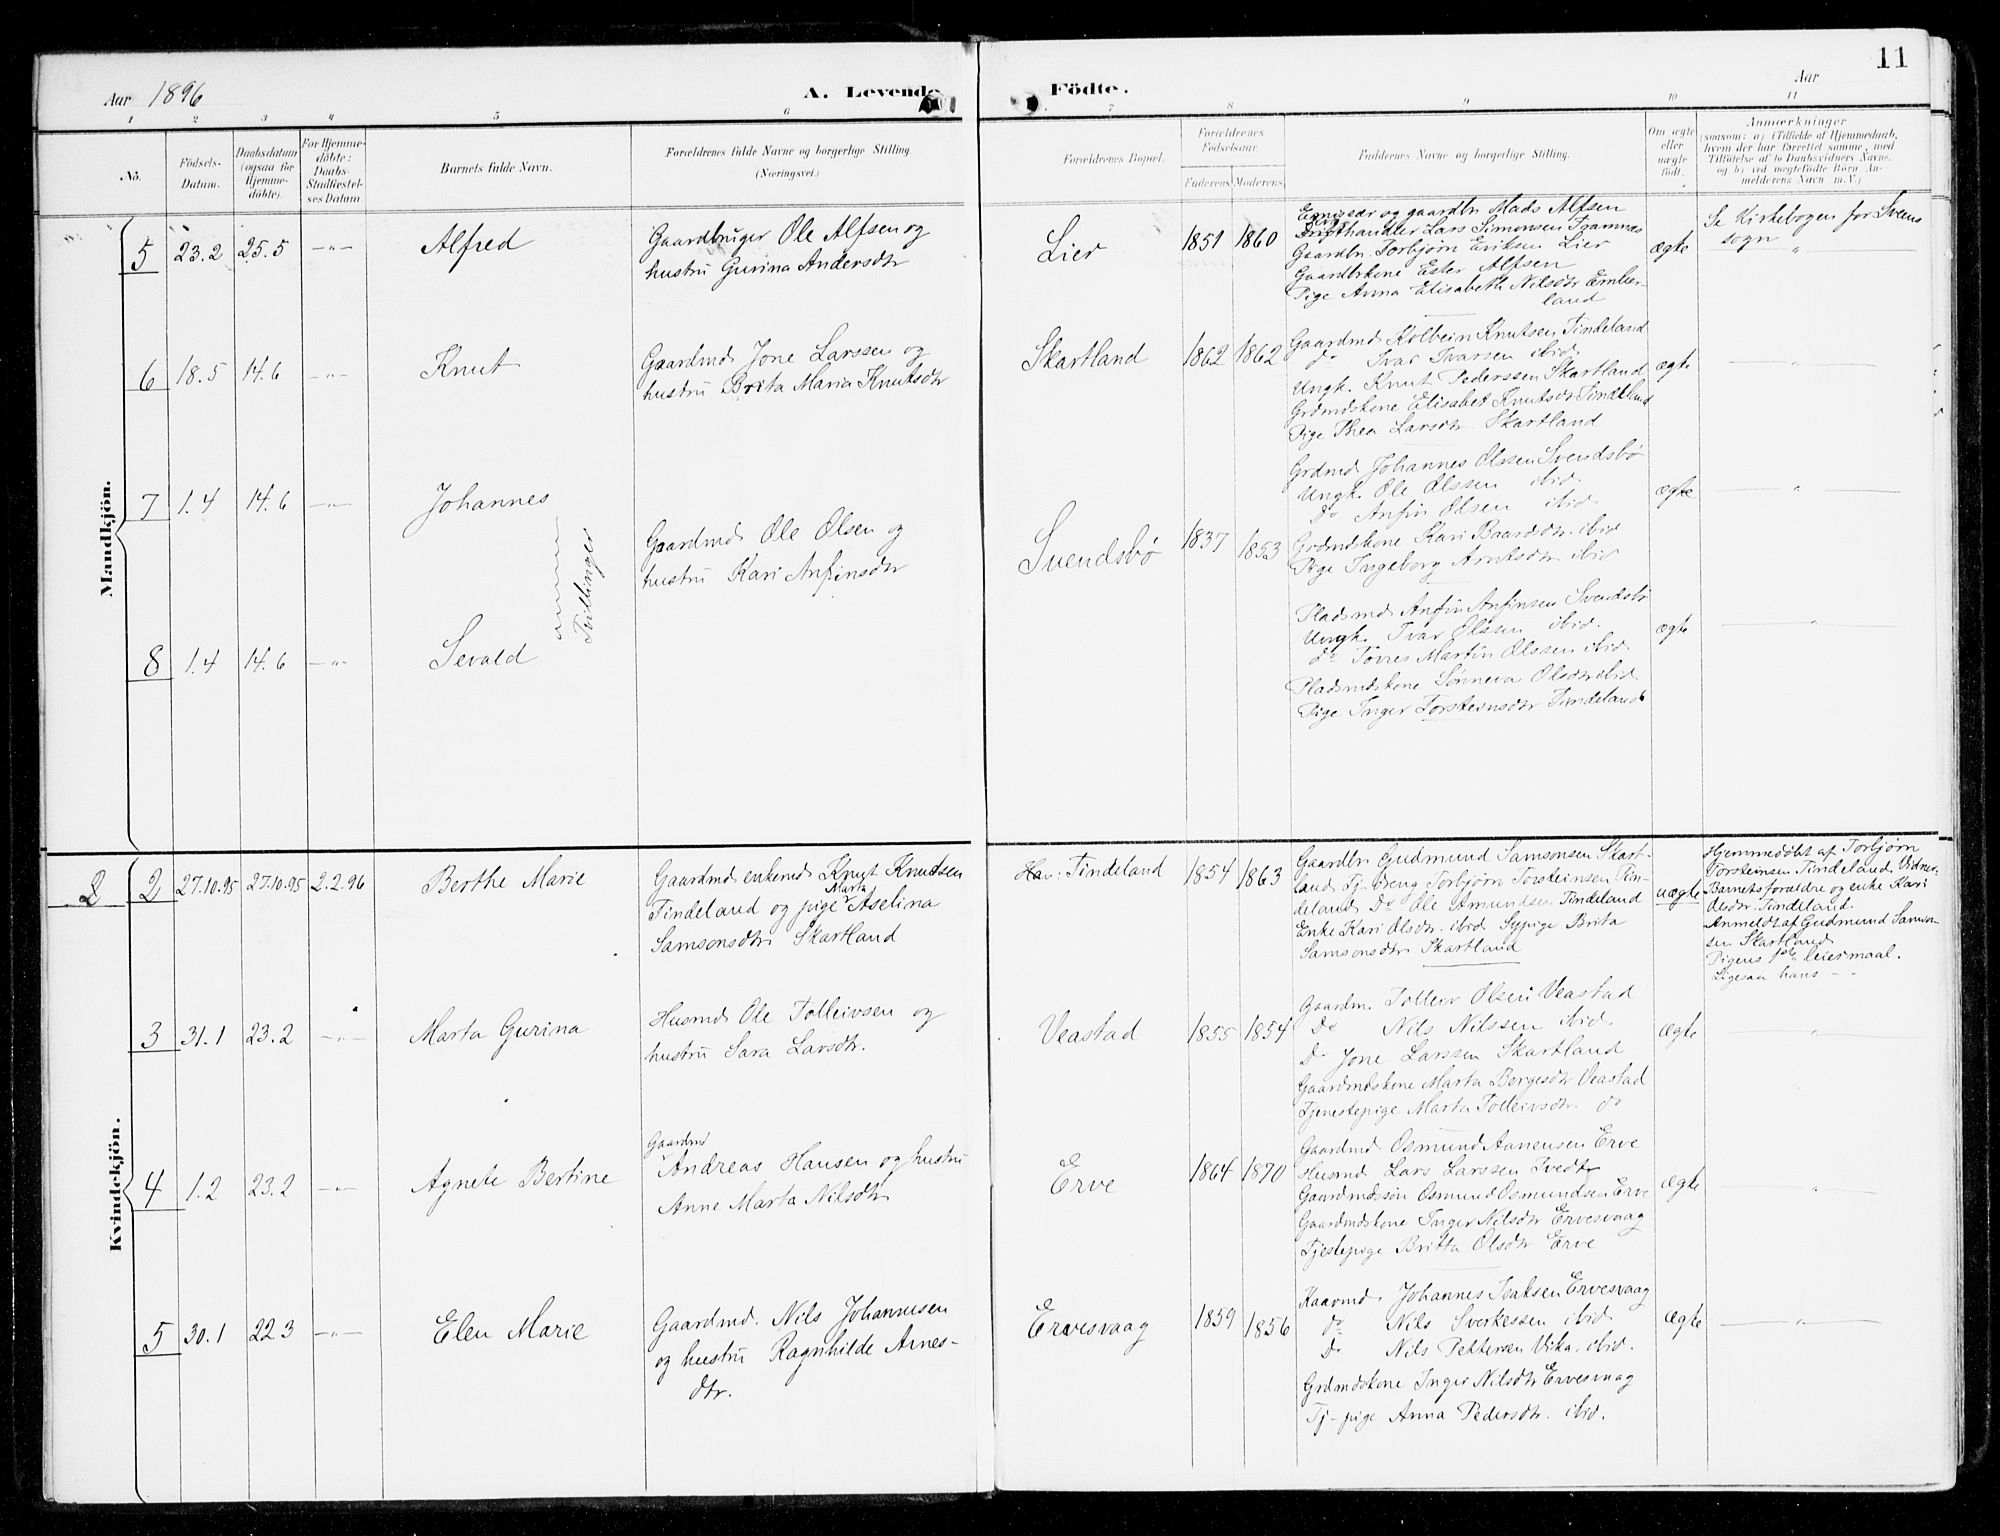 11
Aar 1896
A. Levende Födte.
Aar
1 2 3 4 5 6 7 8 9 10 11
No.
Födsels-
Datum.
Daabsdatum
(ogsaa för
Hjemme-
döbte).
For Hjemme-
döbte:
Daabs-
Stadfæstel-
ses Datum.
Barnets fulde Navn.
Forældrenes fulde Navne og borgerlige Stilling.
(Næringsvei.)
Forældrenes Bopæl.
Forældrenes
Födselsaar.
Faderens. Moderens.
Faddernes Navne og borgerlige Stilling.
Om ægte
eller
uægte
födt.
Anmærkninger
(saasom: a) i Tilfælde af Hjemmedaab,
hvem der har forrettet samme, med
Tilföielse af to Daabsvidners Navne,
og b) ved uægtefödte Börn An-
melderens Navn m.V.)
Mandkjön.
5 23.2 25.5 —"— Alfred
Gaardbruger Ole Alfsen og
hustru Gurina Andersdtr
Lier 1851 1860
Emissær og gaardbr Mads Alfsen
Lars Simonsen Tramnes
Gaardbr. Torbjørn Eriksen Lier
Gaardbrkone Ester Alfsen
Pige Anna Elisabeth Nilsdtr Ember-
land
ægte
Se Kirkebogen for Sveens
sogn "
6 18.5 14.6 —"— Knut
Gaardmd Jone Larssen og
hustru Brita Maria Knutsdtr
Skartland 1862 1862
Gaardmd Kolbein Knutsen Tindeland
do Ivar Ivarsen ibid
Ungk. Knut Pederssen Skartland
Grdmdskone Elisabet Knutsdtr Tindeland
Pige Thea Larsdtr Skartland
ægte —"—
7 1.4 14.6 —"— Johannes
Tvillinger
Gaardmd Ole Olsen og
hustru Kari Anfinsdtr
Svendsbø 1837 1853
Grdmd Johannes Olssen Svendsbø
Ungk. Ole Olssen ibid
Do Anfin Olsen ibid
Grdmdskone Kari Baardsdtr ibid
Pige Ingeborg Arntsdtr ibid
ægte —"—
8 1.4 14.6 —"— Sevald
Pladsmd Anfin Anfinsen Svendsbø
Ungk. Ivar Olssen ibid.
do Torres Martin Olssen ibid
Pladsmdskone Sønneva Olsdtr ibid
Pige Inger Torsteinsdtr Tindeland
ægte —"—
Kvindekjön.
2 2 27.10.95 27.10.95 2.2.96 Berthe Marie
Gaardmd enkemd Knut Knudsen
Tindeland og pige Marta Aselina
Samsonsdtr Skartland
Han: Tindeland 1854 1863
Gaardbr Gudmund Samsonsen Skart-
land Tj-dreng Torbjørn Torsteinsen Tin-
deland Do Ole Amundsen Tindeland
Enke Kari Olsdtr. ibid Sypige Brita
Samsonsdtr Skartland
uægte
Hjemmedøbt af Torbjørn
Torsteinsen Tindeland. Vidner:
Barnets forældre og enke Kari
Olsdtr. Tindeland.
Anmeldt af Gudmund Samson-
sen Skartland
Pigens 1ste leiermaal.
Ligesaa hans – –
3 31.1 23.2 —"— Marta Gurina
Husmd Ole Tolleivsen og
hustru Sara Larsdtr.
Veastad 1855 1854
Gaardm. Tolleiv Olsen Veastad
Do Nils Nilssen ibid.
Do Jone Larssen Skartland
Gaardmdskone Marta Børgesdtr Veastad
Tjenestepige Marta Tolleivsdtr. do
ægte —"—
4 1.2 23.2 —"— Agnete Bertine
Gaardmd
Andreas Hansen og hustru
Anne Marta Nilsdtr
Erve 1864 1870
Gaardmd Osmund Aanensen Erve
Husmd Lars Larssen Tvedt
Gaardmdssøn Osmund Osmundsen Erve
Gaardmdskone Inger Nilsdtr Ervesvaag
Tjestepige Britta Olsdtr Erve
ægte —"—
5 30.1 22.3 —"— Elen Marie
Gaardmd. Nils Johannesen
og hustru Ragnhilde Arnes-
dtr.
Ervesvaag 1859 1856
Johannes Isaksen Ervesvaag
do Nils Sverkessen ibid
Do Nils Pettersen Vika, ibid.
Grdmdskone Inger Nilsdtr Ervesvaag
Tj-pige Anna Pedersdtr. ibid.
ægte —"—